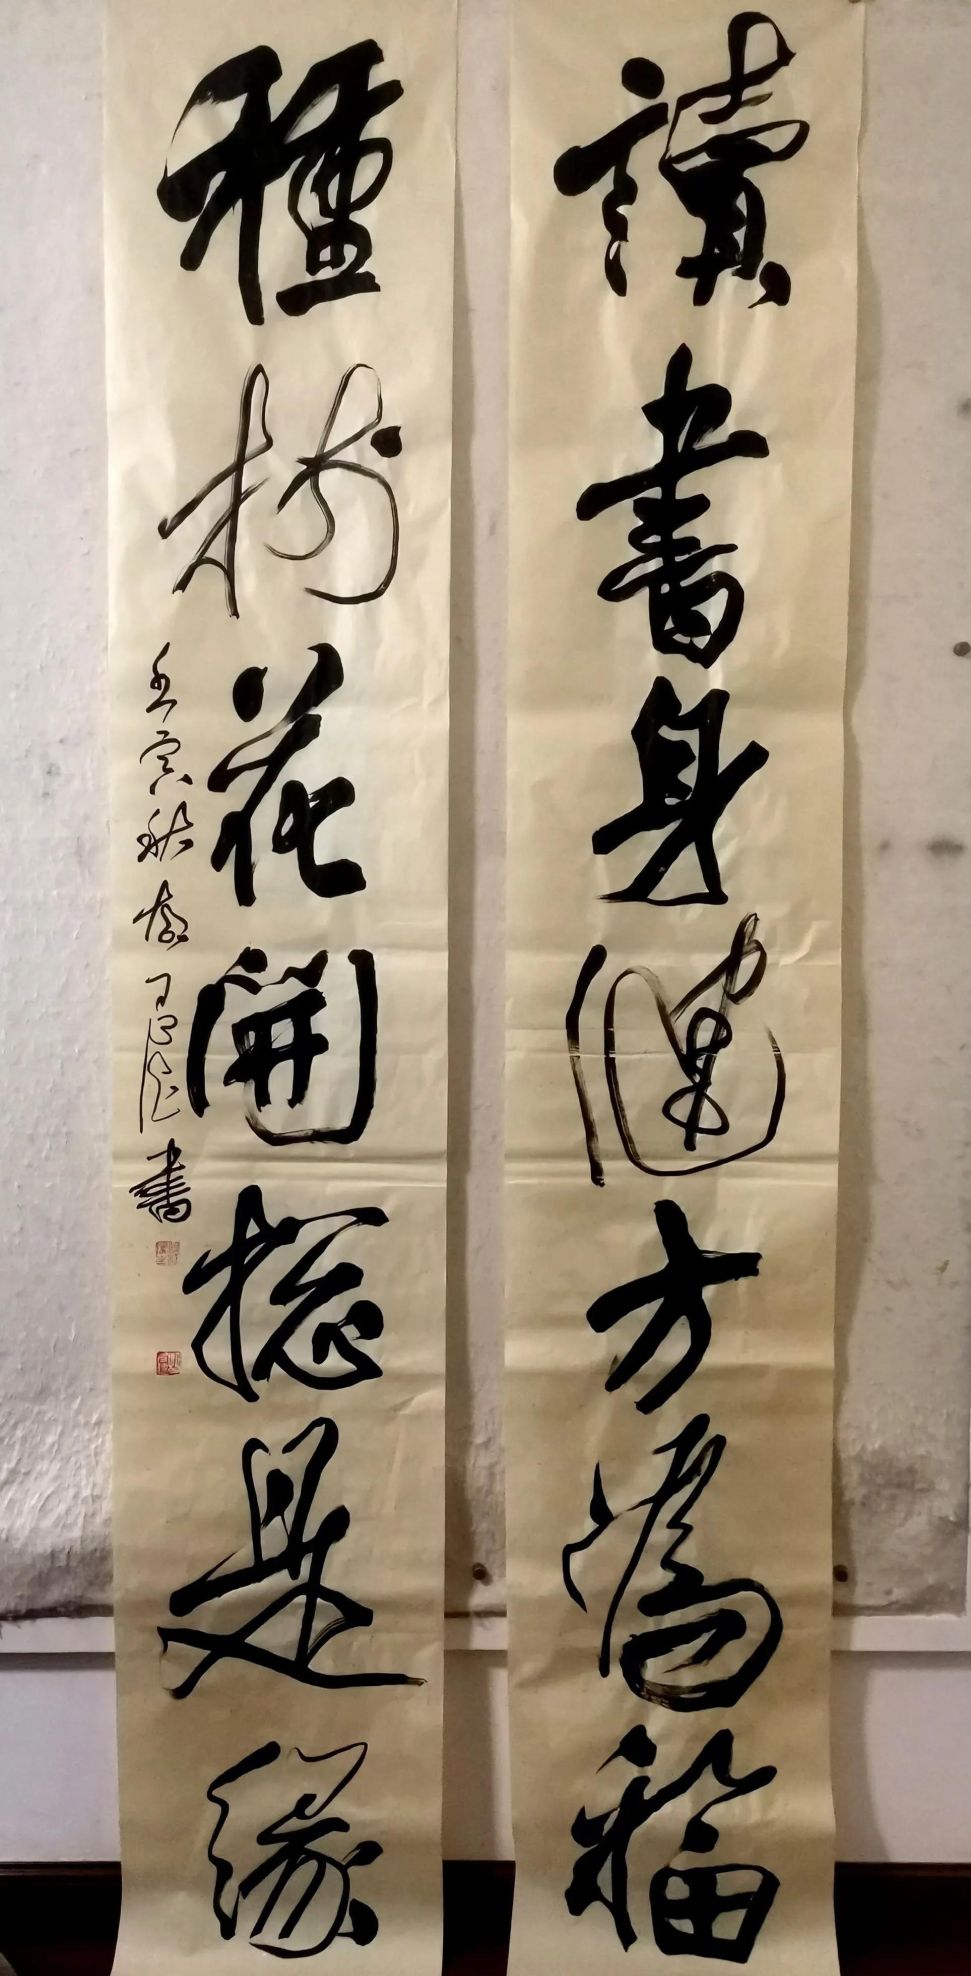 讀書身健方為福
種樹花開總是緣
壬寅秋
書